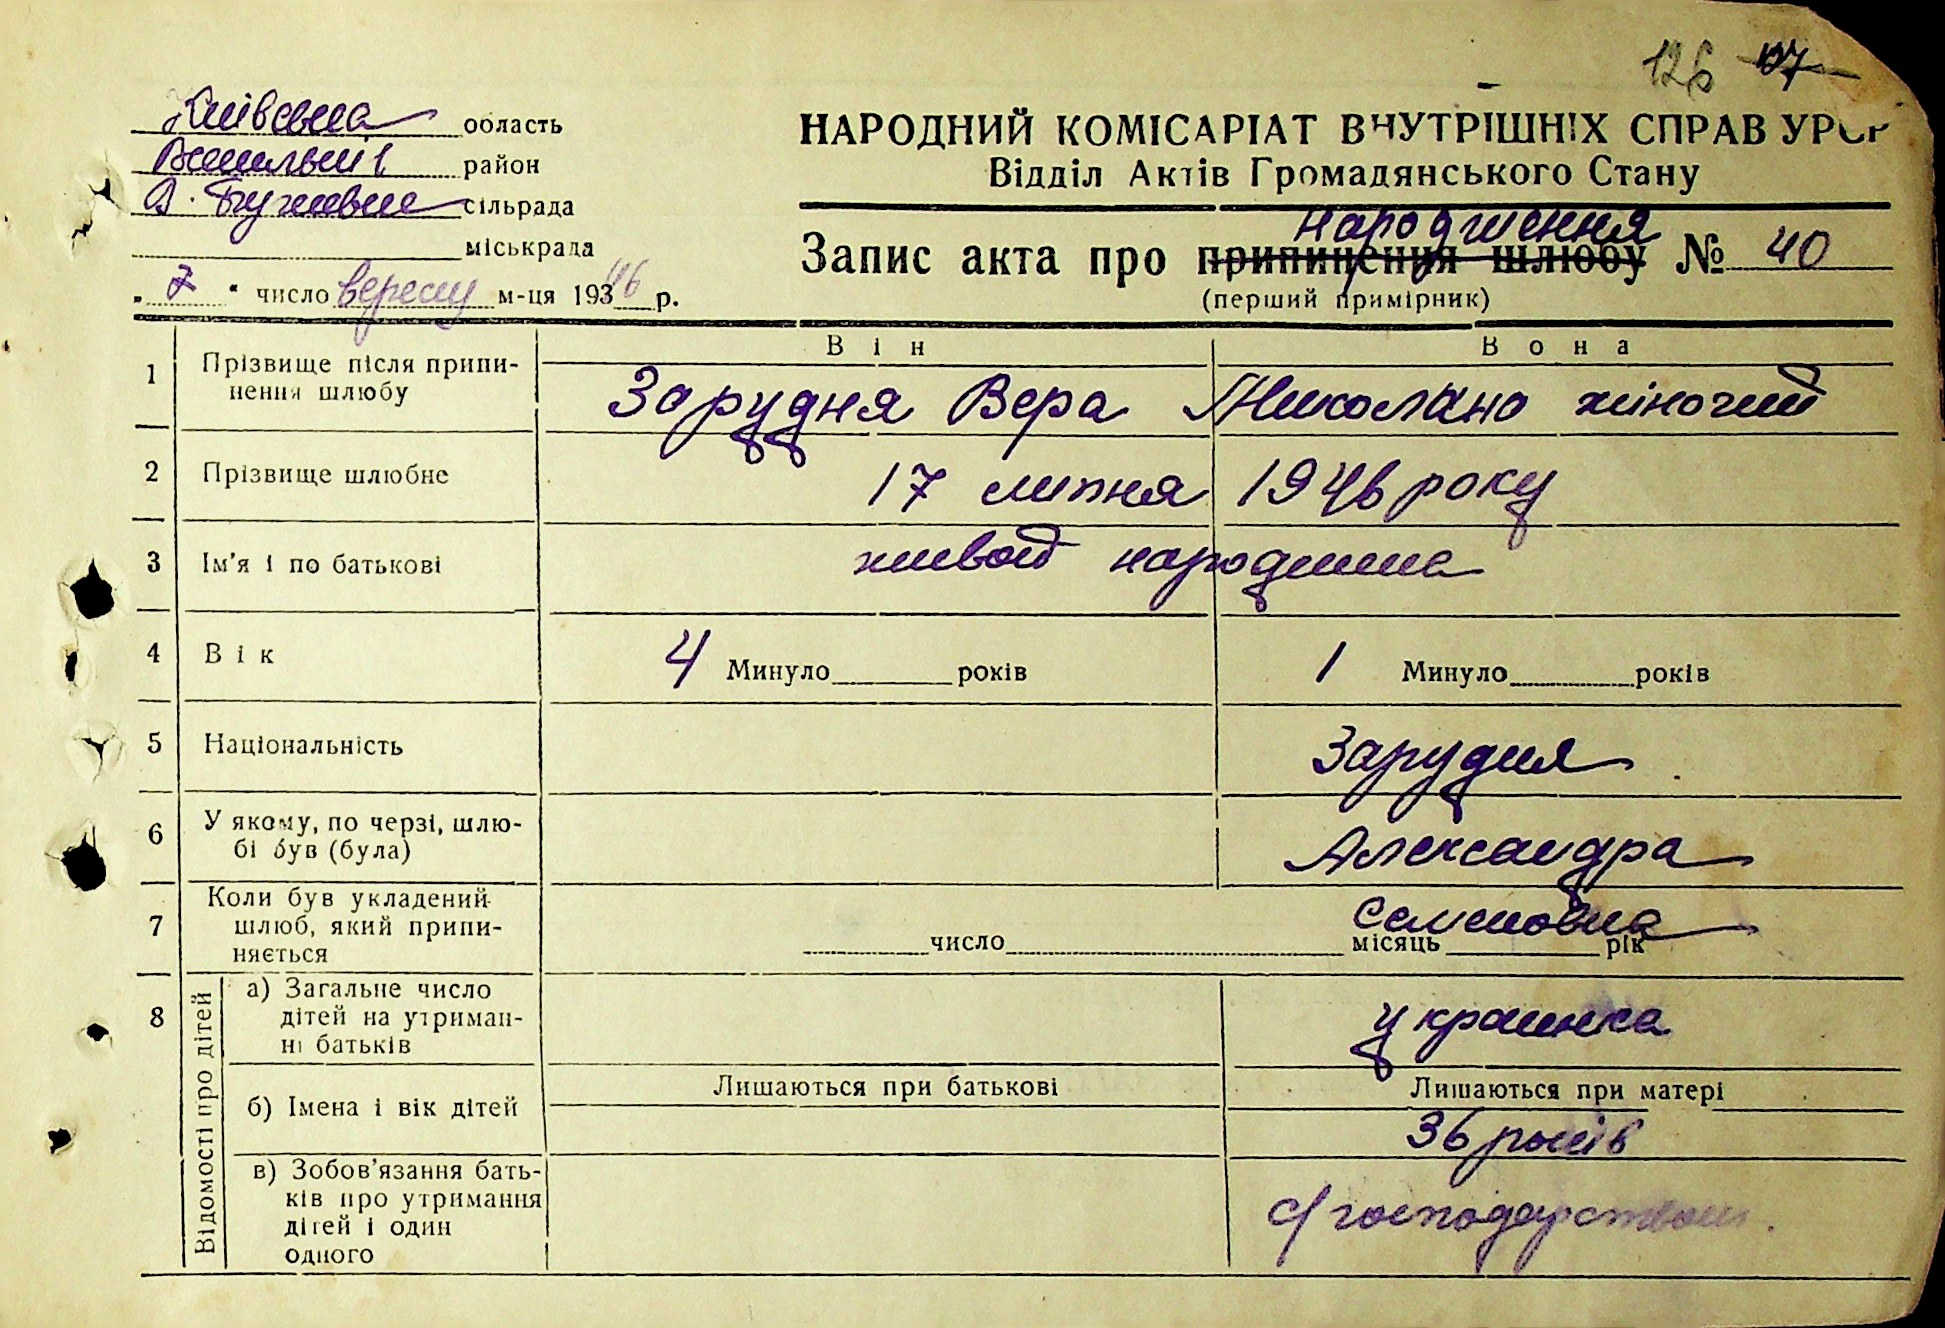 126 107
Київська область
район
В. сільрада
міськрада
" 7 " число вересня м-ця 1946 р.
НАРОДНИЙ КОМІСАРІАТ ВНУТРІШНІХ СПРАВ УРСР
Відділ Актів Громадянського Стану
народження
Запис акта про припинення шлюбу № 40
(перший примірник)
Він Вона
1 Прізвище після припи-
нення шлюбу
Зарудня Вера Николаи жіночий
2 Прізвище шлюбне
17 липня 1946 року
3 Ім'я і по батькові
живой народжена
4 Вік 4 Минуло років 1 Минуло років
5 Національність Зарудня
6 У якому, по черзі, шлю-
бі був (була)
Александра
7 Коли був укладений
шлюб, який припи-
няється
Семеновна
число місяць рік
8 Відомості про дітей
а) Загальне число
дітей на утриман-
ні батьків
украинка
б) Імена і вік дітей
Лишаються при батькові Лишаються при матері
36 років
в) Зобов'язання бать-
ків про утримання
дітей і один
одного
с/господарством.